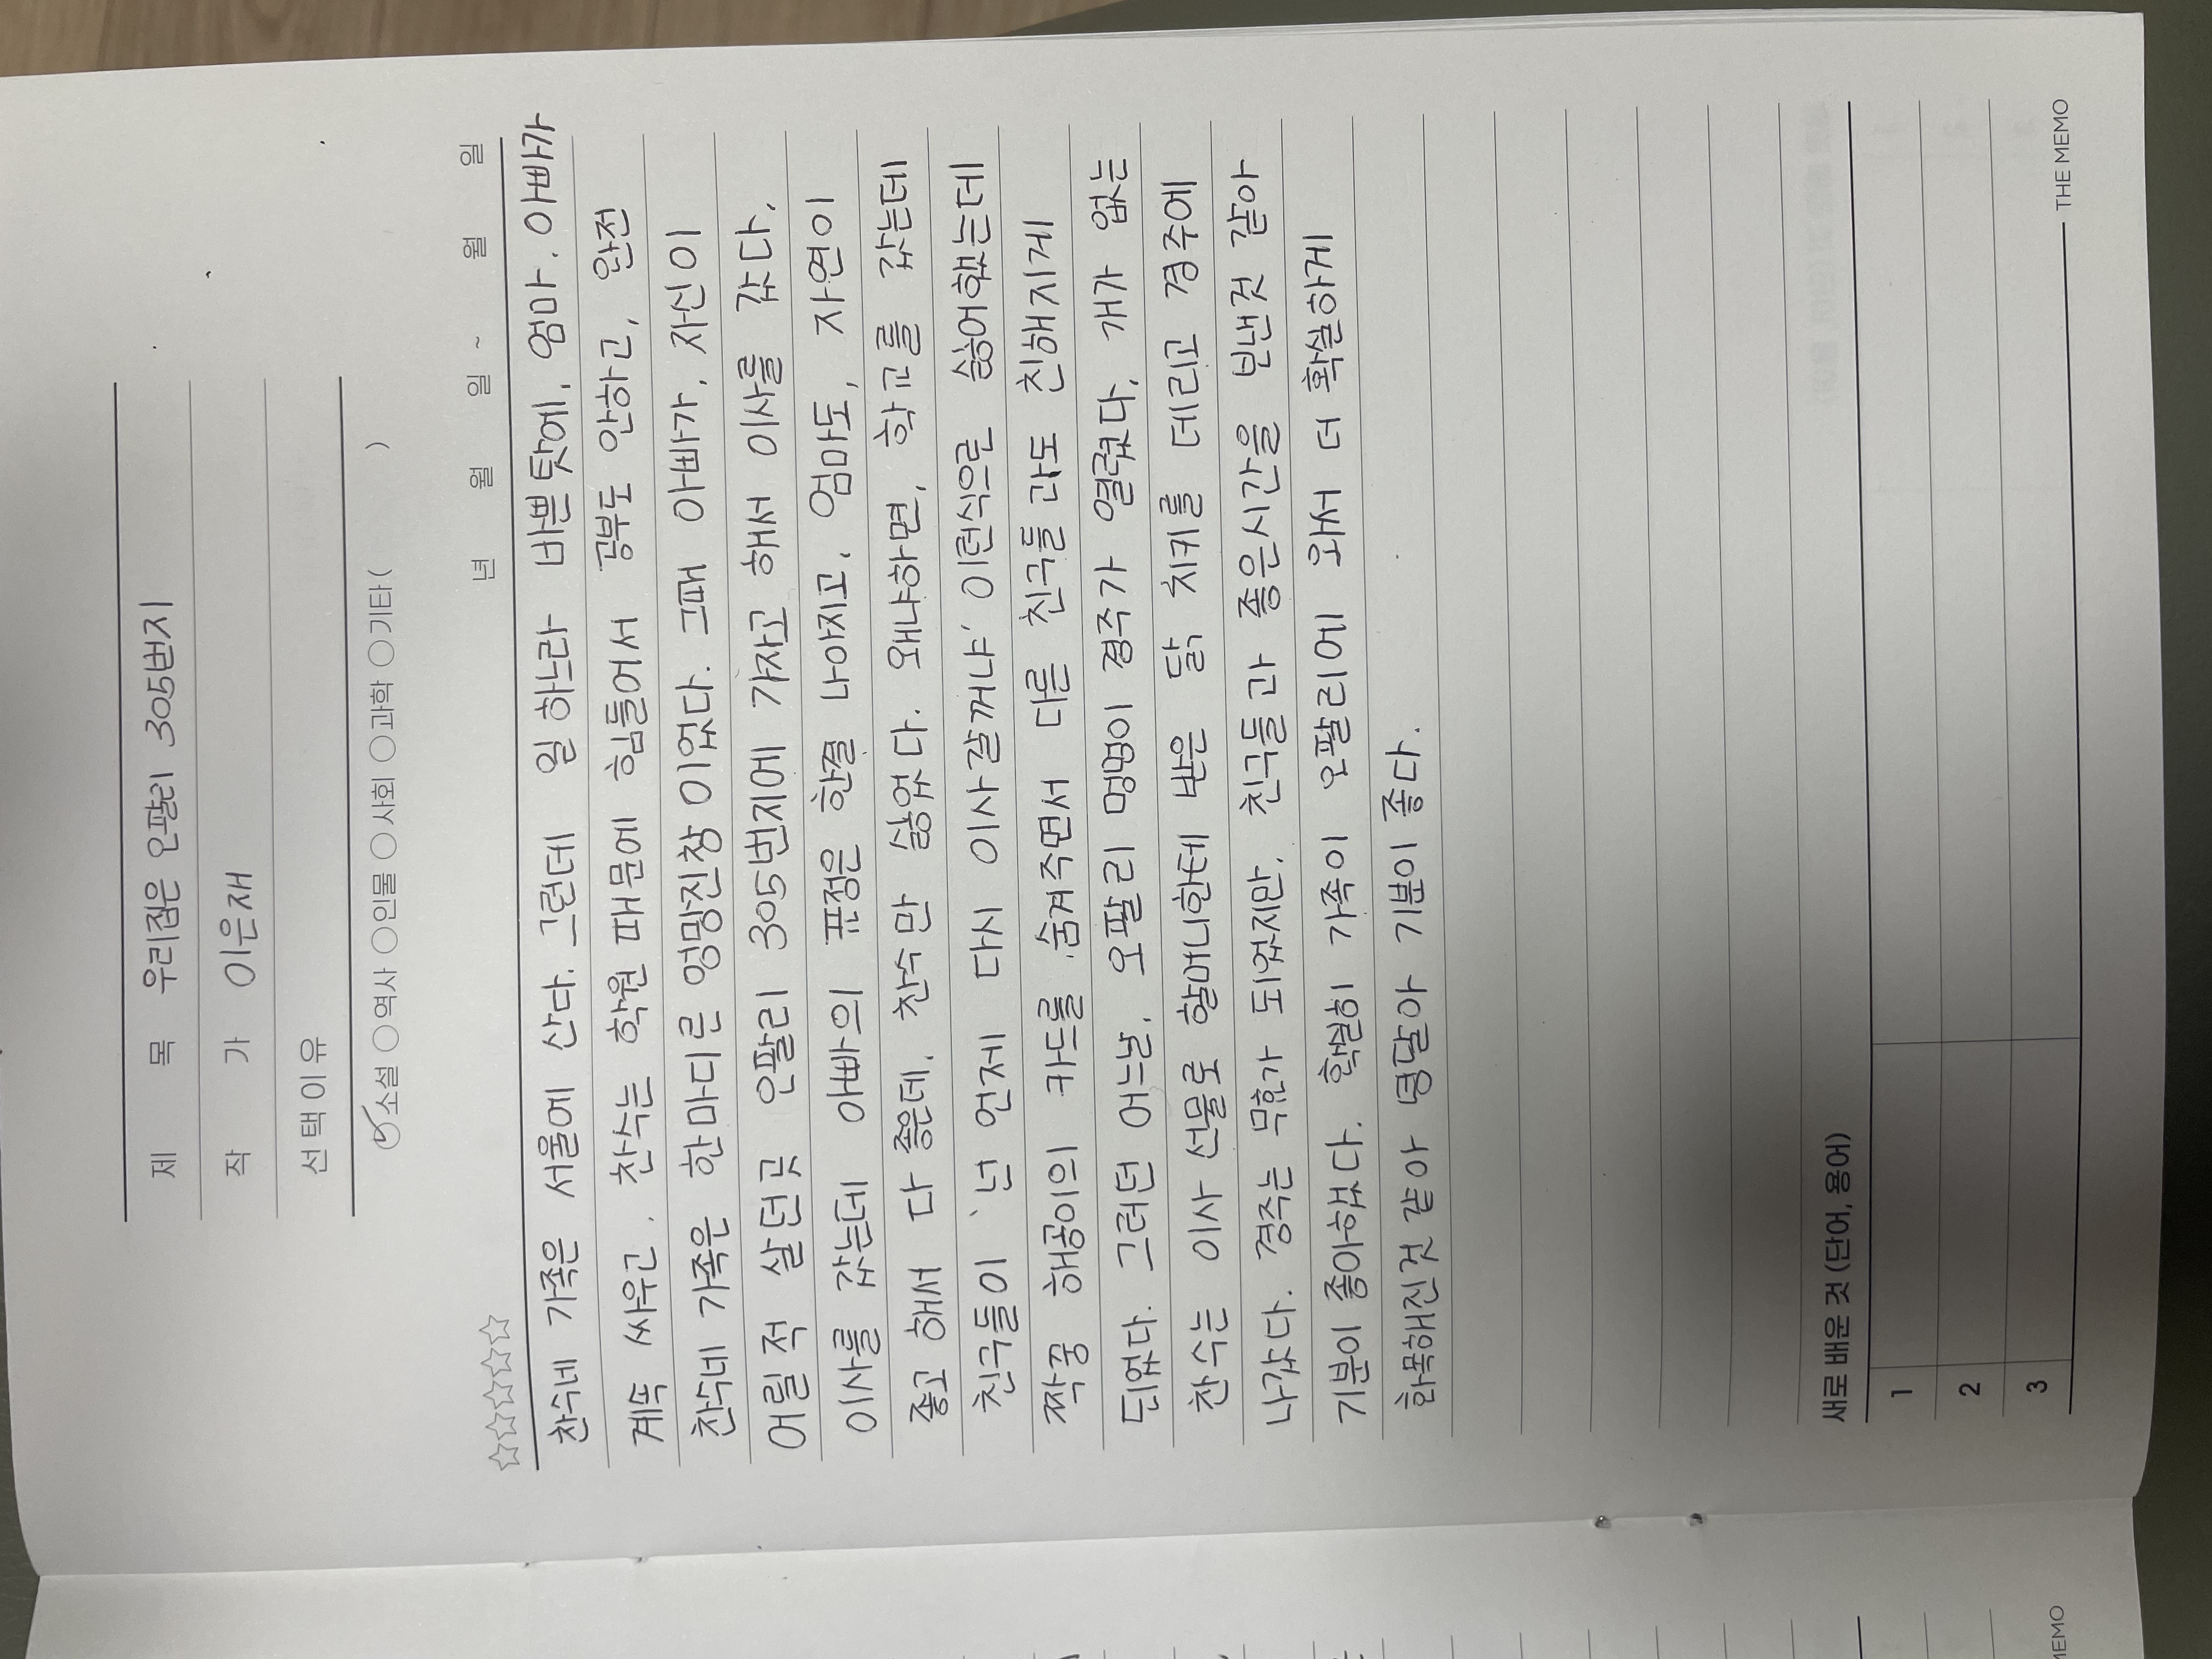 제 목 우리집은 오팔리 305번지
작 가 이은재
선택이유
소설 역사 인물 사회 과학 기타( )
년 월 일 ~ 월 일
찬수네 가족은 서울에 산다. 그런데 일 하느라 바쁜 탓에, 엄마, 아빠가
계속 싸우고, 찬수는 학원 때문에 힘들어서 공부도 안하고, 완전
찬수네 가족은 한마디로 엉망진창 이었다. 그때 아빠가, 자신이
어릴적 살던곳 오팔리 305번지에 가자고 해서 이사를 갔다.
이사를 갔는데 아빠의 표정은 한결 나아지고, 엄마도, 자연이
좋고 해서 다 좋은데, 찬수만 싫었다. 왜냐하면, 학교를 갔는데
친구들이 '넌 언제 다시 이사갈꺼냐' 이런식으로 싫어했는데
짝꿍 해공이의 카드를 숨겨주면서 다른 친구들과도 친해지게
되었다. 그러던 어느날, 오팔리 멍멍이 경주가 열렸다, 개가 없는
찬수는 이사 선물로 할머니한테 받은 닭 치키를 데리고 경주에
나갔다. 경주는 무효가 되었지만, 친구들과 좋은시간을 보낸것 같아
기분이 좋아했다. 확실히 가족이 오팔리에 와서 더 확실하게
화목해진것 같아 덩달아 기분이 좋다.
새로 배운 것 (단어, 용어)
1
2
3
THE MEMO
MEMO